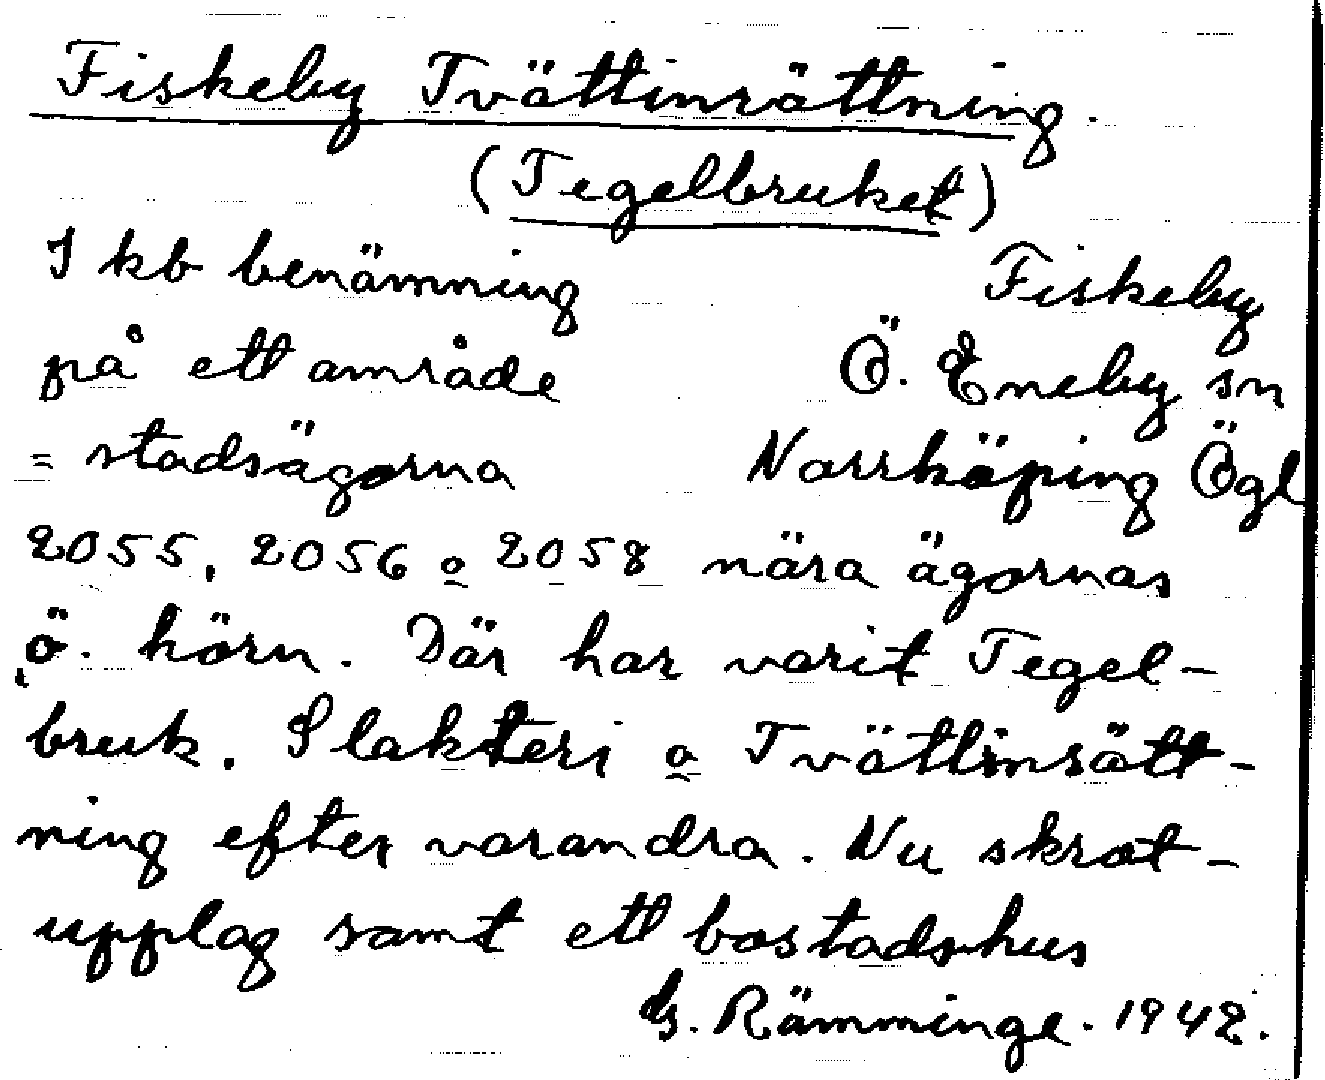 Fiskeby Tvättinrättning.
(Tegelbruket)
I kb benämning
på ett område
= stadsägorna
Fiskeby
Ö. Eneby sn
Norrköping Ögl
2055, 2056 o 2058 nära ägornas
ö. hörn. Där har varit Tegel-
bruk. Slakteri o Tvättinrätt-
ning efter varandra. Nu skrot-
upplag samt ett bostadshus
G. Rämminge. 1942.